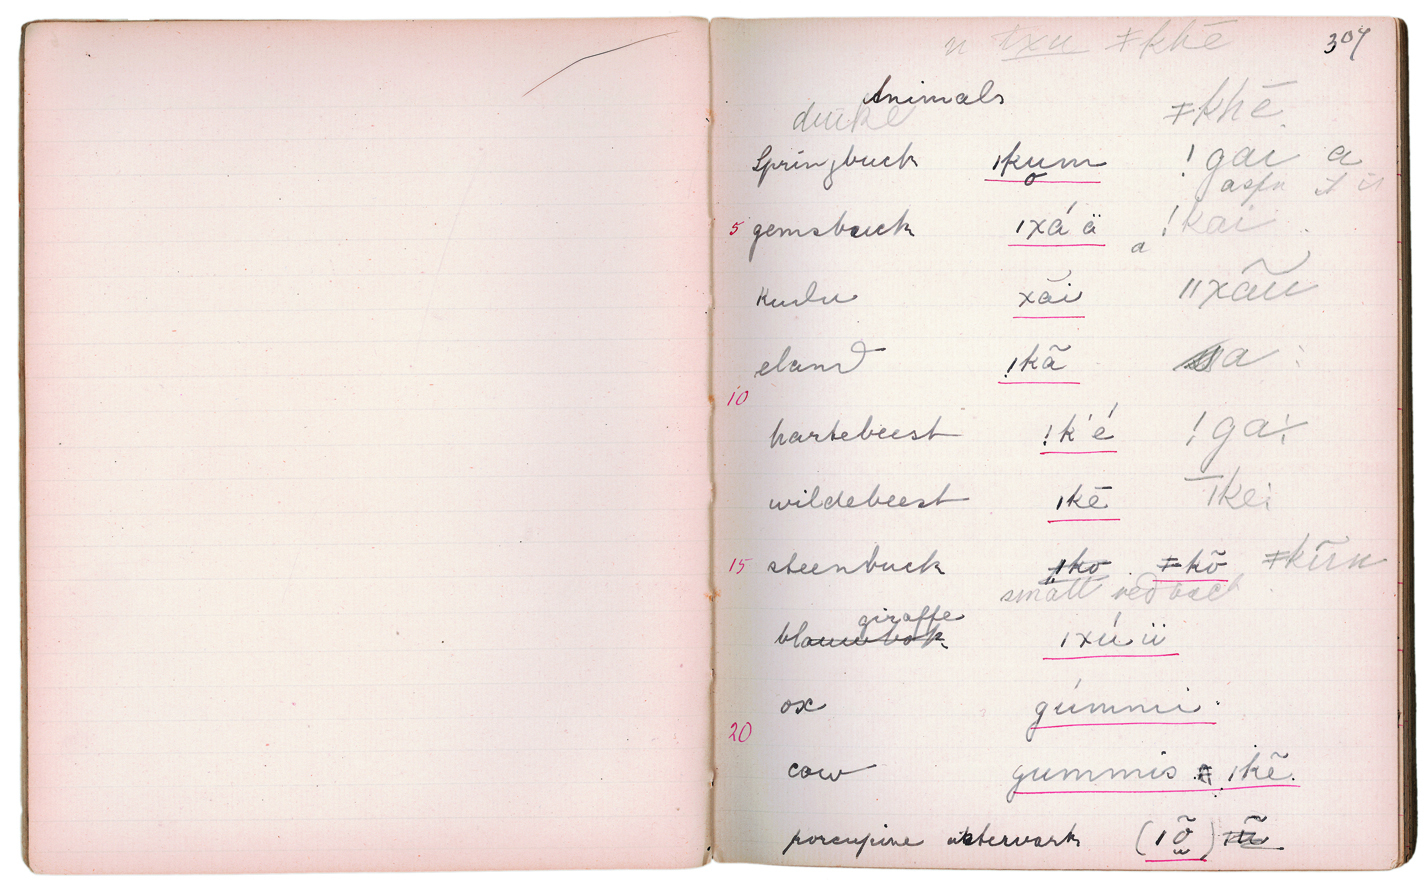 n txu ǂkhē 307
Animals
duike ǂkhē
Springbuck ǀkum !gai a
o
5 gemsbuck ǀxá ä a !kai
Kudu xăi ǁxãū
eland !kã a
10
hartebeest !k'é !gai
wildebeest ǀkē ǀkei
15 steenbuck ǀko ǂkõ ǂkīrn
small red buck
giraffe
blauwbok ǀxú ü
ox gúmmi
20
cow gummis ǀkẽ.
porcupine (ǀõ)